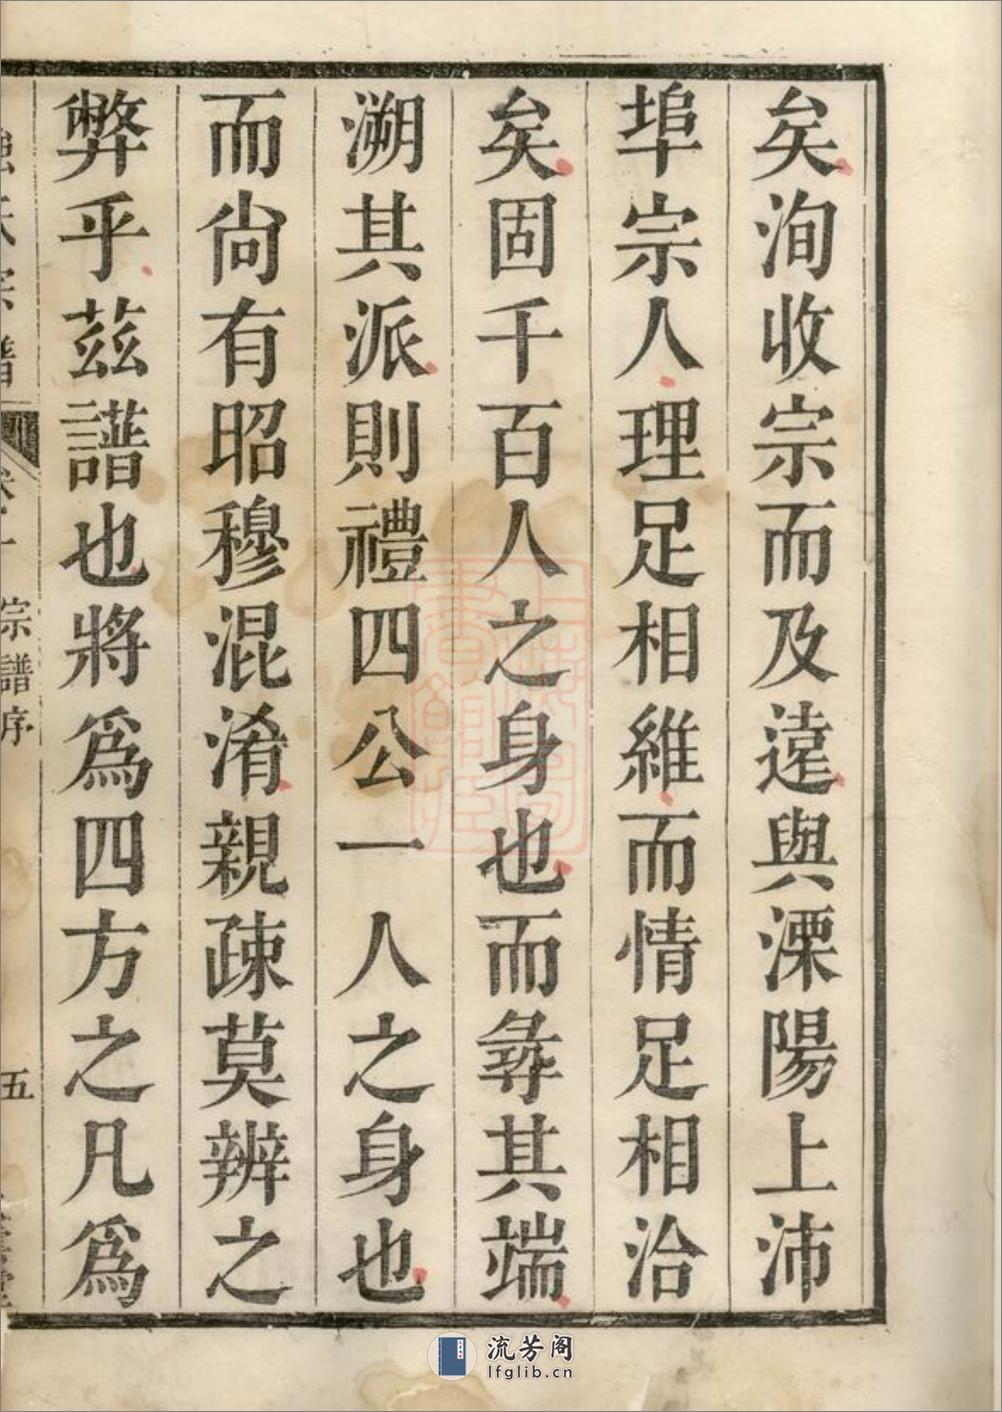 矣洵收宗而及遠與溧陽上沛
埠宗人理足相維而情足相洽
矣固千百人之身也而彝其端
溯其派則禮四公一人之身也
而尙有昭穆混淆親疎莫辨之
弊乎茲譜也將爲四方之凡爲
氏宗譜
宗譜序
五
流芳阁
lfglib.cn